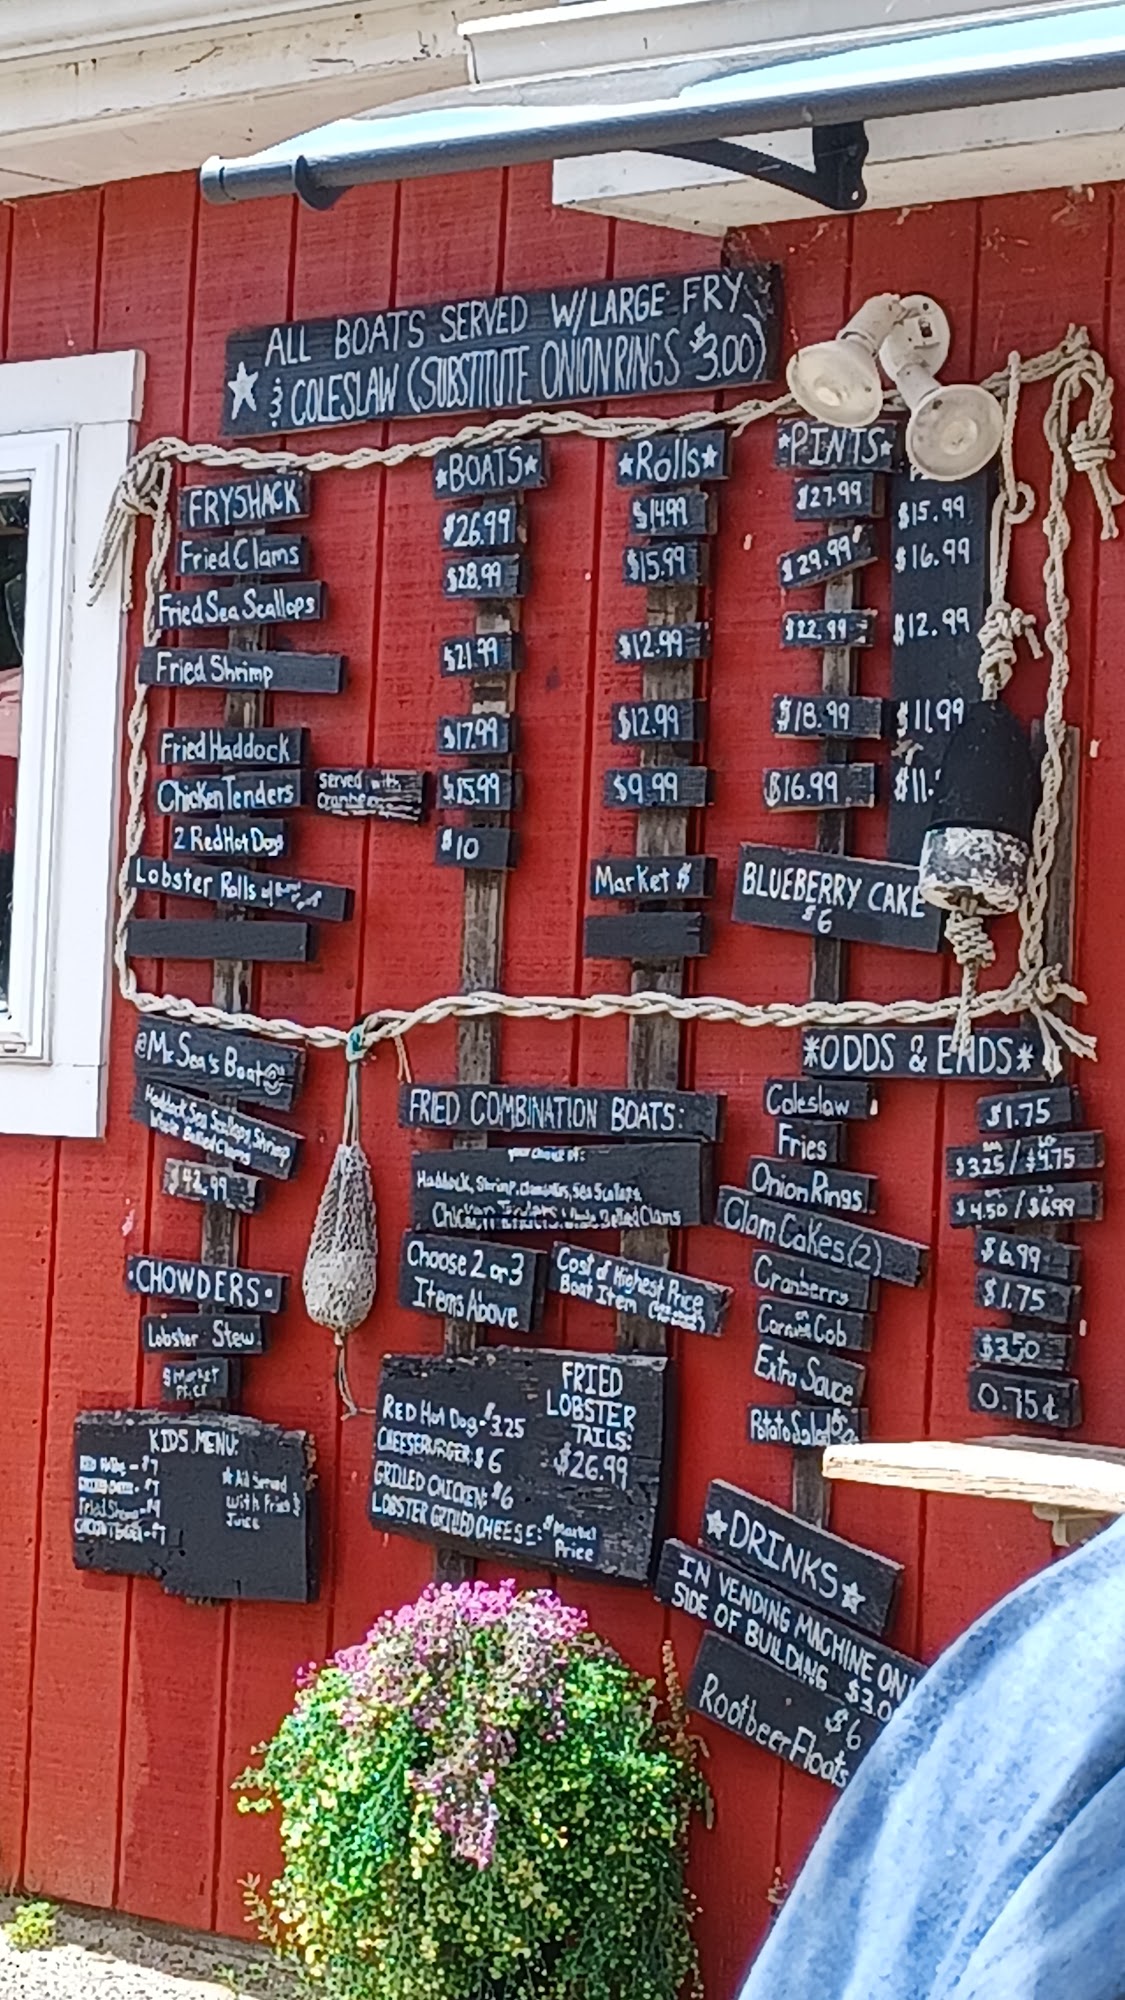 ALL BOATS SERVED W/LARGE FRY
& COLESLAW (SUBSTITUTE ONION RINGS $3.00)
FRYSHACK
Fried Clams
Fried Sea Scallops
Fried Shrimp
Fried Haddock
Chicken Tenders
Served with
2 Red Hot Dogs
Lobster Rolls
*BOATS*
$26.99
$28.99
$21.99
$17.99
$15.99
$10
*Rolls*
$14.99
$15.99
$12.99
$12.99
$9.99
Market $
*PINTS*
$27.99
$29.99
$22.99
$18.99
$16.99
$15.99
$16.99
$12.99
$11.99
$11.
BLUEBERRY CAKE
$6
@Mr Sea's Boat@
Haddock, Sea Scallops, Shrimp
Whole Bellied Clams
$42.99
•CHOWDERS•
Lobster Stew
$ Market
Price
KIDS MENU:
Fried Shrimp
* All Served
with Fries &
Juice
FRIED COMBINATION BOATS:
your choice of:
Haddock, Shrimp, Sea Scallops,
Chicken Tenders, Whole Bellied Clams
Choose 2 or 3
Items Above
Cost of Highest Price
Boat Item
RED Hot Dog-$3.25
CHEESEBURGER: $6
GRILLED CHICKEN: $6
LOBSTER GRILLED CHEESE: $ Market
Price
FRIED
LOBSTER
TAILS:
$26.99
*ODDS & ENDS*
Coleslaw
$1.75
Fries
$3.25 / $4.75
Onion Rings
$4.50 / $6.99
Clam Cakes (2)
$6.99
Cranberry
$1.75
Corn on Cob
$3.50
Extra Sauce
0.75¢
Potato Salad
*DRINKS*
IN VENDING MACHINE ON
SIDE OF BUILDING $3.0
$6
Rootbeer Floats